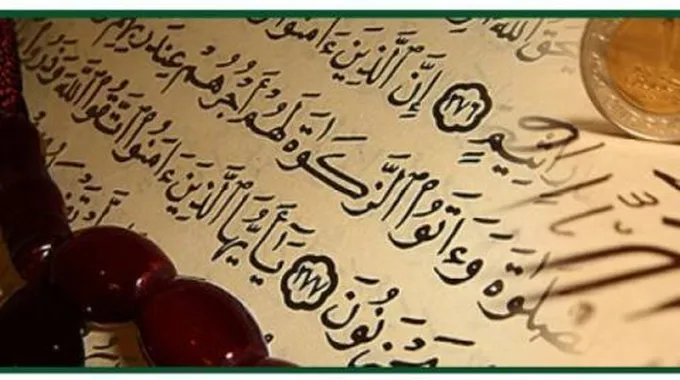 أَثِيمٍ ٢٧٦ إِنَّ ٱلَّذِينَ ءَامَنُوا
صَّلَوٰةَ وَءَاتَوُا۟ ٱلزَّكَوٰةَ لَهُمْ أَجْرُهُمْ عِندَ رَبِّهِمْ
حْزَنُونَ ٢٧٧ يَٰٓأَيُّهَا ٱلَّذِينَ ءَامَنُوا۟ ٱتَّقُوا۟ ٱللَّهَ وَذَرُوا۟